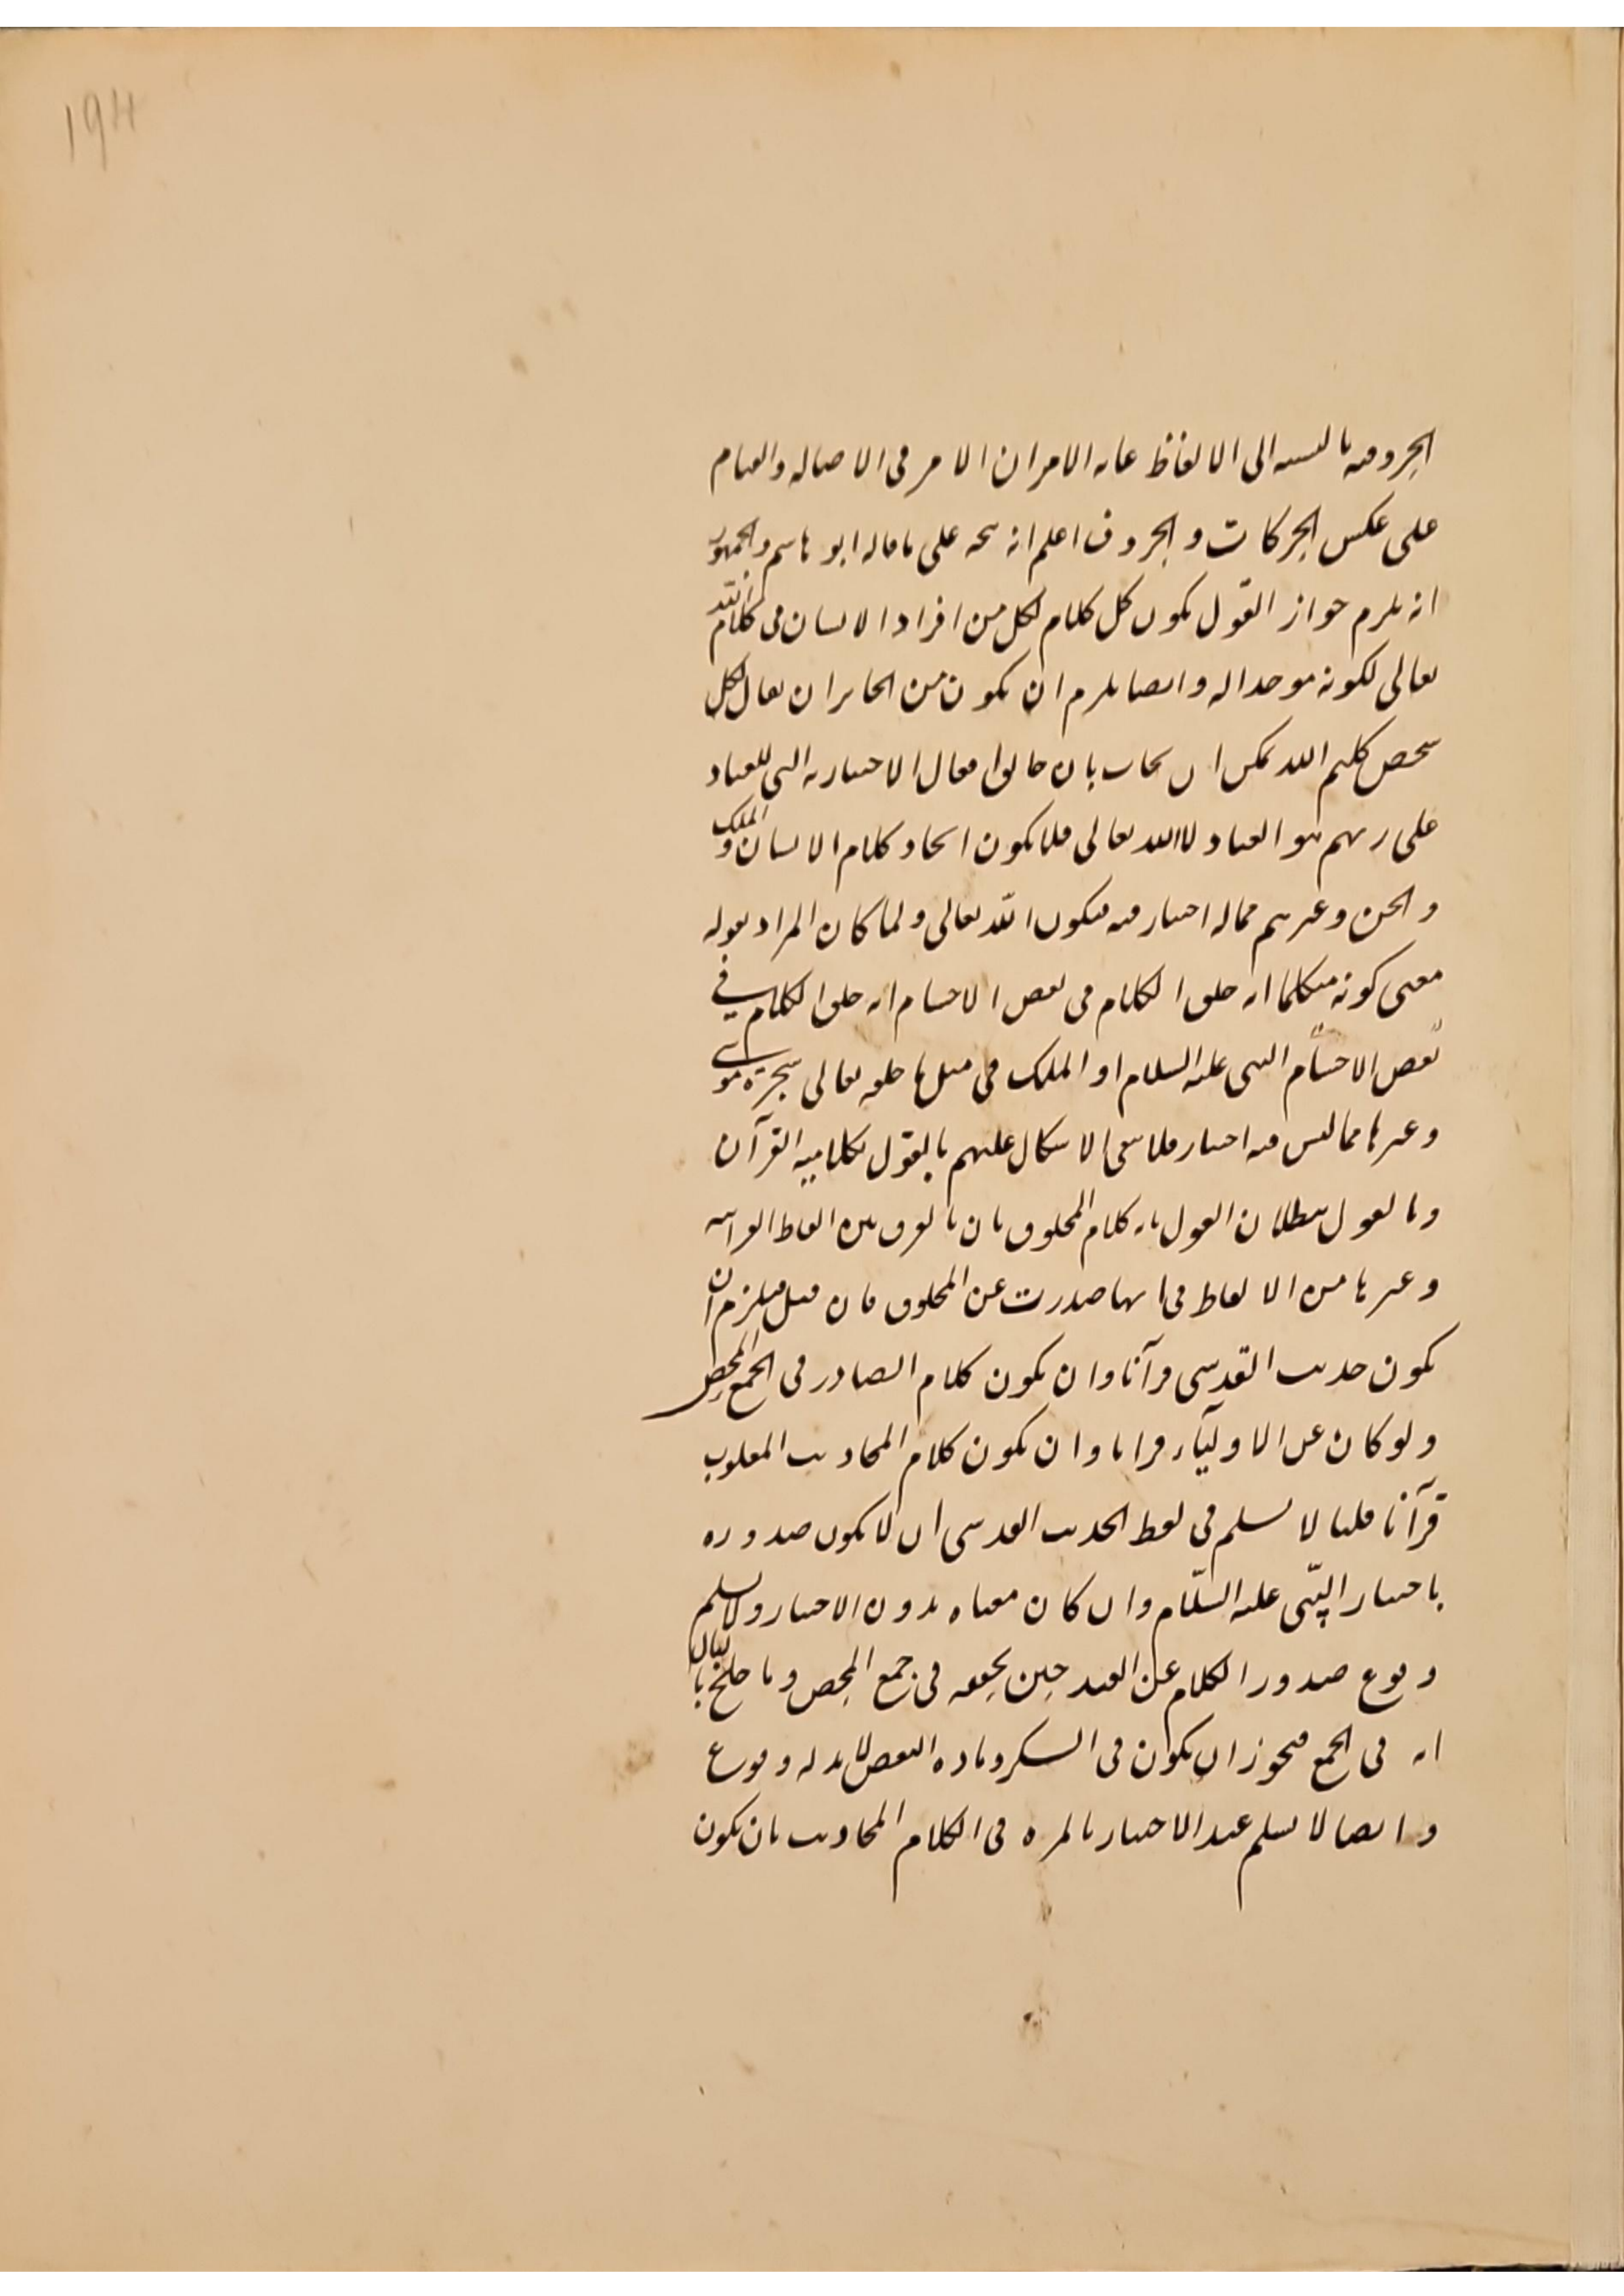 194
الحروفيه بالنسبه الى الالفاظ غايه الامر ان الامر فى الاصاله والقيام
على عكس الحركات و الحروف اعلم انه يتجه على ما قاله ابو هاشم والجمهور
انه يلزم جواز القول بكون كل كلام لكل من افراد الانسان هى كلام الله
تعالى لكونه موجدا له وايضا يلزم ان يكون من الجايز ان يقال لكل
شخص كليم الله يمكن ان يجاب بان خالق افعال الاختياريه التى للعباد
على رايهم هو العباد لا الله تعالى فلا يكون ايجاد كلام الانسان و الملك
و الجن وغيرهم مما له اختيار فيه فيكون الله تعالى ولما كان المراد بقوله
معنى كونه متكلما انه خلق الكلام فى بعض الاجسام انه خلق الكلام فى
بعض الاجسام النبى عليه السلام او الملك فى مثل ما خلقه تعالى شجرة موسى
وغيرها مما ليس فيه اختيار فلا يبقى الاشكال عليهم بالقول بكلاميه القرآن
وبالقول ببطلان القول بانه كلام المخلوق بان بالفرق بين الفاظ القرانيه
وغيرها من الالفاظ فى انها صدرت عن المخلوق فان قيل فيلزم ان
يكون حديث القدسى قرآنا وان يكون كلام الصادر فى الجمع المحض
ولو كان عن الاوليآء قرانا وان يكون كلام المجاذيب المغلوب
قرآنا قلنا لا نسلم فى لفظ الحديث القدسى ان لا يكون صدوره
باختيار النبّى عليه السلّام وان كان معناه بدون الاختيار ولا نسلم
وقوع صدور الكلام عن العبد حين تحققه فى جمع المحض وما
انه فى الجمع فيجوز ان يكون فى السكر وماده النقض لا بد له وقوع
وايضا لا نسلم عبد الاختيار بالمره فى الكلام المجاذيب بان يكون